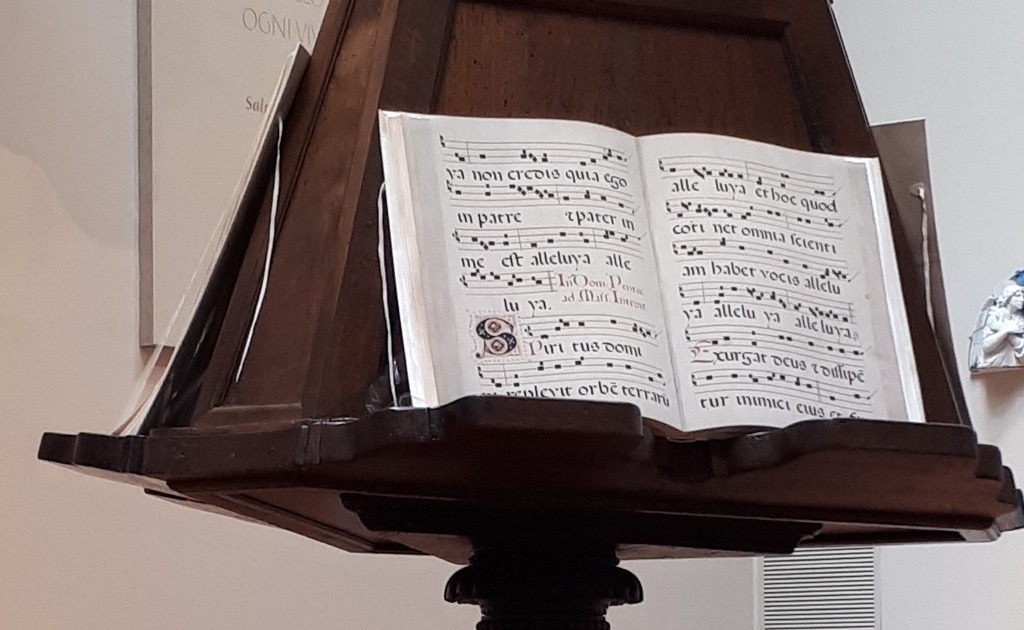 OGNI
ya non credis quia ego
in patre τpater in
me est alleluya alle
lu ya.
In Dom Pente
ad Miss. Introit
Spiri tus domi
replevit orbē terrarū
alle luya et hoc quod
conti net omnia scienti
am habet vocis allelu
ya allelu ya alleluya
Exurgat deus τ dissipē
tur inimici eius et